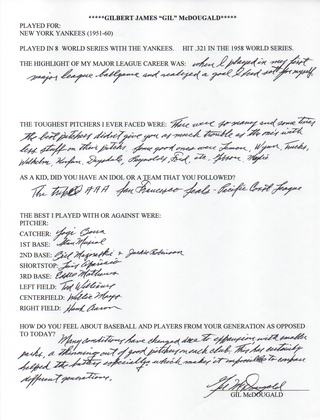 *****GILBERT JAMES "GIL" McDOUGALD*****
PLAYED FOR:
NEW YORK YANKEES (1951-60)
PLAYED IN 8 WORLD SERIES WITH THE YANKEES. HIT .321 IN THE 1958 WORLD SERIES.
THE HIGHLIGHT OF MY MAJOR LEAGUE CAREER WAS: when I played in my first
major league ballgame and realized a goal I had set for myself.
THE TOUGHEST PITCHERS I EVER FACED WERE: There were so many and some times
the best pitchers didn't give you as much trouble as the ones with
less stuff on their pitches. Some good ones were Lemon, Wynn, Trucks,
Wilhelm, Drysdale, Reynolds, etc.
AS A KID, DID YOU HAVE AN IDOL OR A TEAM THAT YOU FOLLOWED?
The AAA San Francisco Seals - Pacific Coast League
THE BEST I PLAYED WITH OR AGAINST WERE:
PITCHER:
CATCHER: Yogi Berra
1ST BASE: Stan Musial
2ND BASE: Bill Mazeroski & Jackie Robinson
SHORTSTOP: Luis Aparicio
3RD BASE: Eddie Mathews
LEFT FIELD: Ted Williams
CENTERFIELD: Willie Mays
RIGHT FIELD: Hank Aaron
HOW DO YOU FEEL ABOUT BASEBALL AND PLAYERS FROM YOUR GENERATION AS OPPOSED
TO TODAY? Many conditions have changed due to expansion with smaller
parks, a thinning out of good pitching on each club. This has certainly
helped the batters especially which makes it impossible to compare
different generations.
Gil McDougald
GIL McDOUGALD